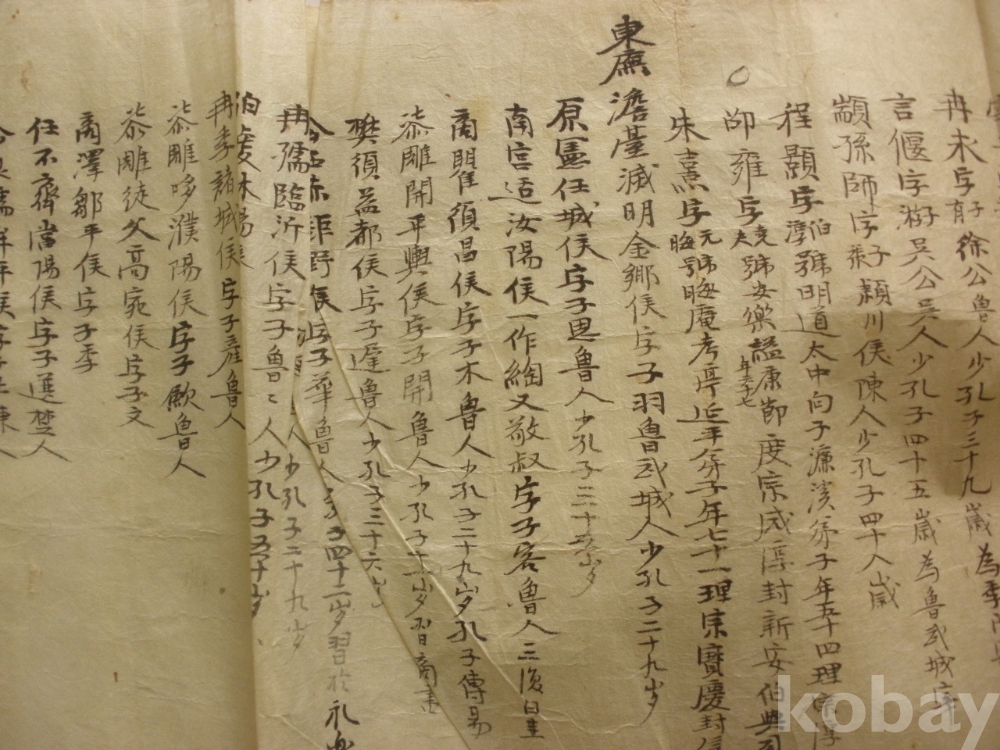 冉求字子有徐公魯人少孔子二十九歲為季
言偃字子游吳公吳人少孔子四十五歲為魯武城宰
顓孫師字子張潁川侯陳人少孔子四十八歲
程顥字伯淳號明道太中向子濂溪弟子年五十四理宗淳
邵雍字堯夫號安樂謚康節年六十七度宗咸淳封新安伯
朱熹字元晦號晦庵考亭延平弟子年七十一理宗寶慶封信
東廡 澹臺滅明金鄉侯字子羽魯武城人少孔子三十九岁
原憲任城侯字子思魯人少孔子三十五岁
南宮适汝陽侯一作縚又敬叔字子容魯人三復白圭
商瞿須昌侯字子木魯人少孔子二十九岁孔子傳易
漆雕開平輿侯字子開魯人少孔子十一岁習尚書
樊須益都侯字子遲魯人少孔子三十六岁
公西赤鉅野侯字子華魯人少孔子四十二岁習於礼樂
冉孺臨沂侯字子魯魯人少孔子五十岁
伯虔沐陽
冉季諸城侯字子產魯人
漆雕哆濮陽侯字子歛魯人
漆雕徒父高宛侯字子文
商澤鄒平侯字子季
任不齊當陽侯字子選楚人
kobay